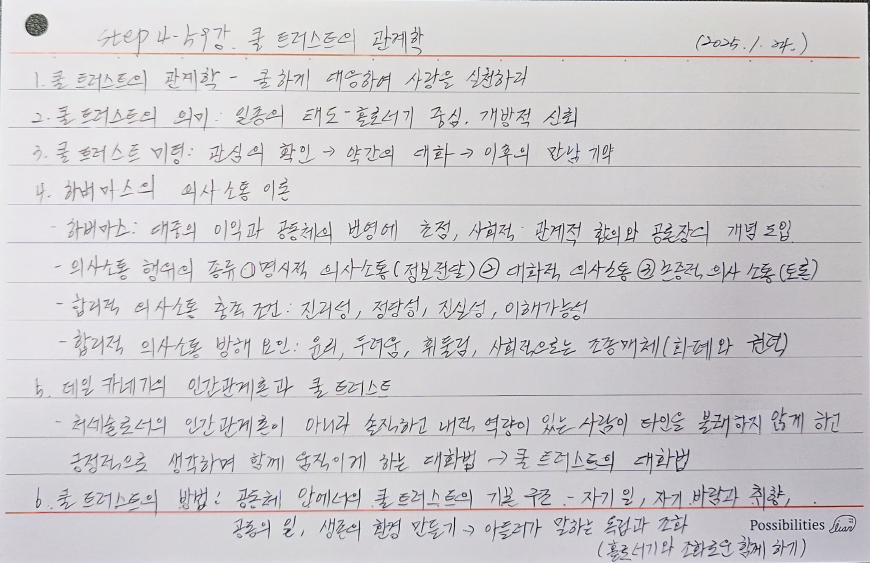 Step 4-59강. 쿨 트러스트의 관계학 (2025. 1. 24.)
1. 쿨 트러스트의 관계학 - 쿨하게 대응하여 사랑을 실천하라
2. 쿨 트러스트의 의미: 일종의 태도-홀로서기 중심. 개방적 신뢰
3. 쿨 트러스트 미팅: 관심의 확인 → 약간의 대화 → 이후의 만남 기약
4. 하버마스의 의사소통 이론
- 하버마스: 대중의 이익과 공동체의 번영에 초점, 사회적·관계적 합의와 공론장의 개념 도입
- 의사소통 행위의 종류 ① 명시적 의사소통(정보전달) ② 대화적 의사소통 ③ 논증적 의사소통(토론)
- 합리적 의사소통 충족 조건: 진리성, 정당성, 진실성, 이해가능성
- 합리적 의사소통 방해 요인: 윤리, 두려움, 휘둘림, 사회적으로는 조종매체(화폐와 권력)
5. 데일 카네기의 인간관계론과 쿨 트러스트
- 처세술로서의 인간관계론이 아니라 솔직하고 내적 역량이 있는 사람이 타인을 불쾌하지 않게 하고
긍정적으로 생각하며 함께 움직이게 하는 대화법 → 쿨 트러스트의 대화법
6. 쿨 트러스트의 방법: 공동체 안에서의 쿨 트러스트의 기본 구조 - 자기 일, 자기 바람과 취향,
공동의 일, 생존의 환경 만들기 → 아들러가 말하는 독립과 조화
(홀로서기와 조화로운 함께 하기)
Possibilities